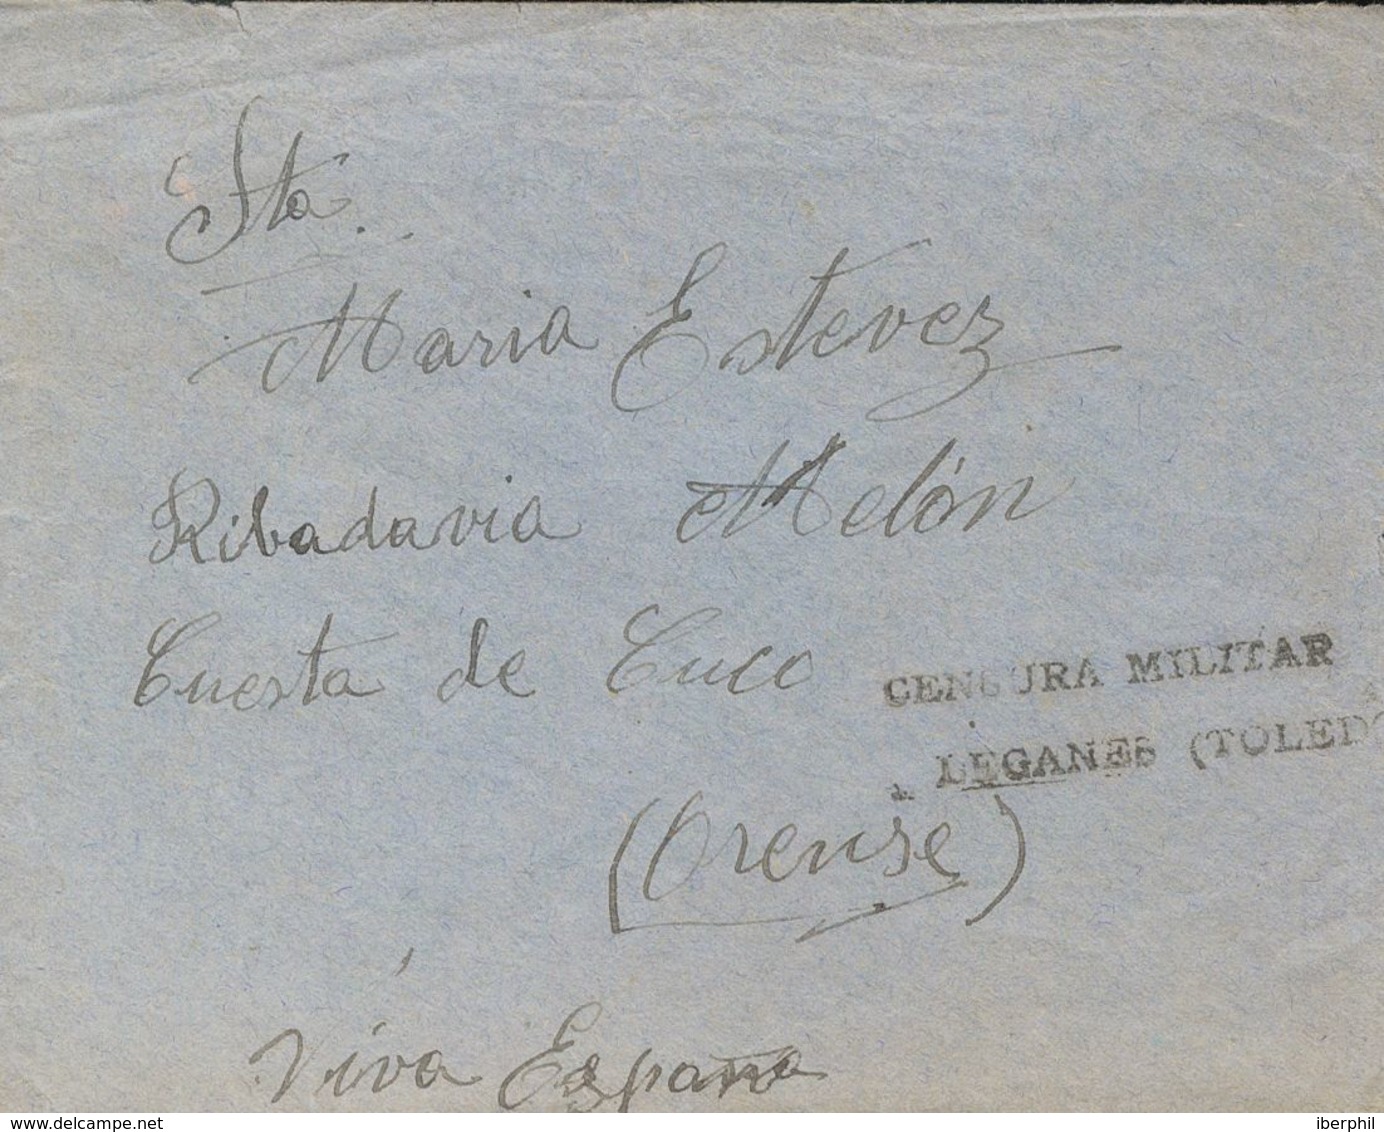 Sta.
Maria Estevez
Ribadavia Melón
Cuesta de Cuco
CENSURA MILITAR
LEGANES (TOLEDO
(Orense)
Viva España
delcampe.net
iberphil